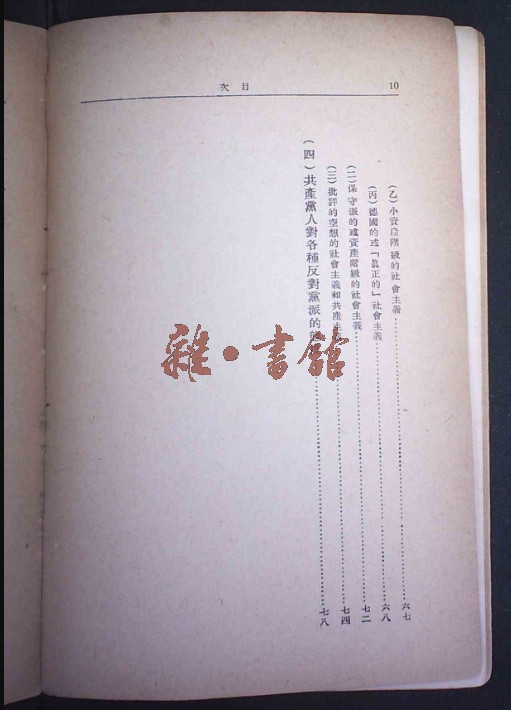 10
目 次
(乙)小資產階級的社會主義……六七
(丙)德國的或「眞正的」社會主義……六八
(二)保守派的或資產階級的社會主義……七二
(三)批評的空想的社會主義和共產主……七四
(四)共產黨人對各種反對黨派的……七八
雜·書館